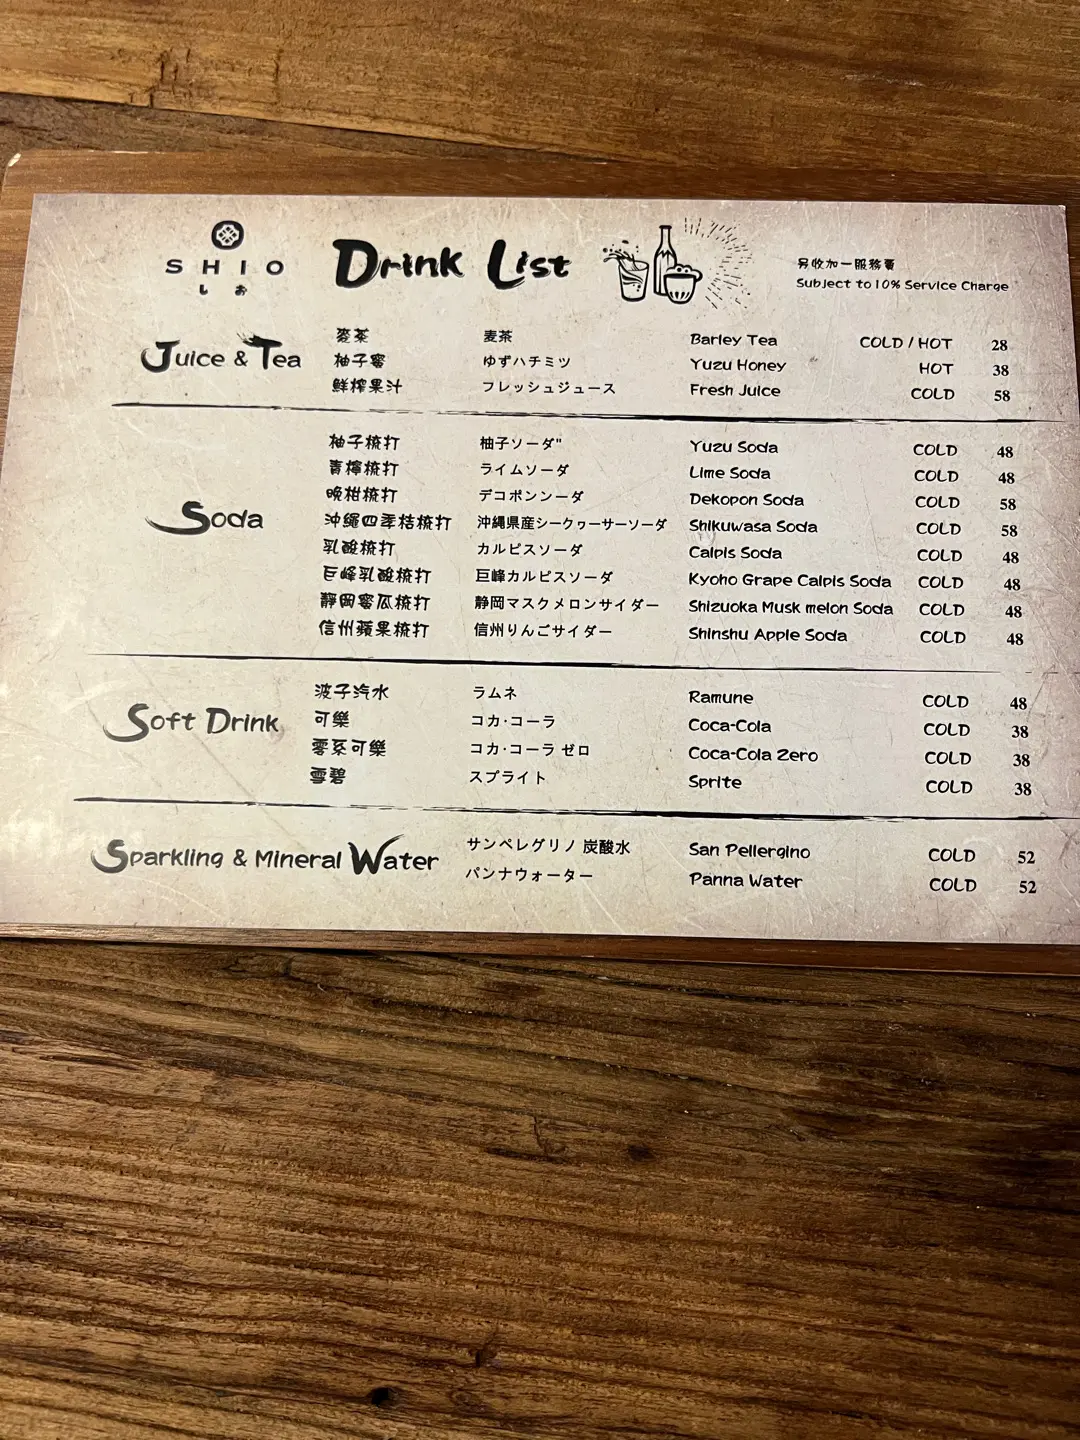 SHIO
しお
Drink List
另收加一服務費
Subject to 10% Service Charge
Juice & Tea
麥茶 麦茶 Barley Tea COLD / HOT 28
柚子蜜 ゆずハチミツ Yuzu Honey HOT 38
鮮榨果汁 フレッシュジュース Fresh Juice COLD 58
Soda
柚子梳打 柚子ソーダ" Yuzu Soda COLD 48
青檸梳打 ライムソーダ Lime Soda COLD 48
晚柑梳打 デコポンンーダ Dekopon Soda COLD 58
沖繩四季桔梳打 沖縄県産シークヮーサーソーダ Shikuwasa Soda COLD 58
乳酸梳打 カルピスソーダ Calpis Soda COLD 48
巨峰乳酸梳打 巨峰カルピスソーダ Kyoho Grape Calpis Soda COLD 48
靜岡蜜瓜梳打 静岡マスクメロンサイダー Shizuoka Musk melon Soda COLD 48
信州蘋果梳打 信州りんごサイダー Shinshu Apple Soda COLD 48
Soft Drink
波子汽水 ラムネ Ramune COLD 48
可樂 コカ·コーラ Coca-Cola COLD 38
零系可樂 コカ·コーラ ゼロ Coca-Cola Zero COLD 38
雪碧 スプライト Sprite COLD 38
Sparkling & Mineral Water
サンペレグリノ 炭酸水 San Pellergino COLD 52
パンナウォーター Panna Water COLD 52